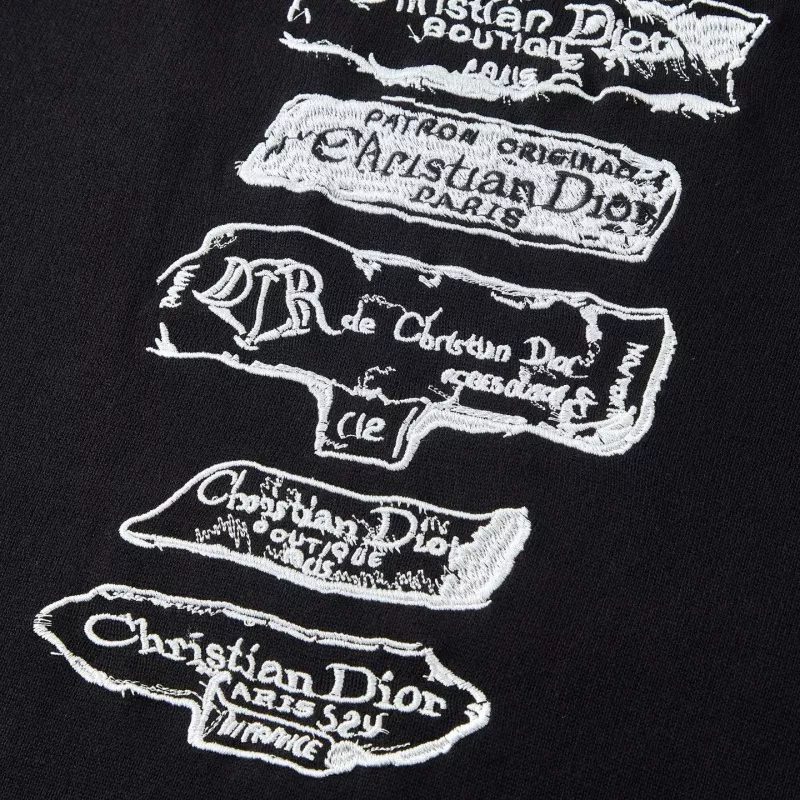 Christian Dior
BOUTIQUE
PARIS
PATRON ORIGINAL
Christian Dior
PARIS
DIR de Christian Dior
C12
Christian Dior
BOUTIQUE
PARIS
Christian Dior
PARIS S24